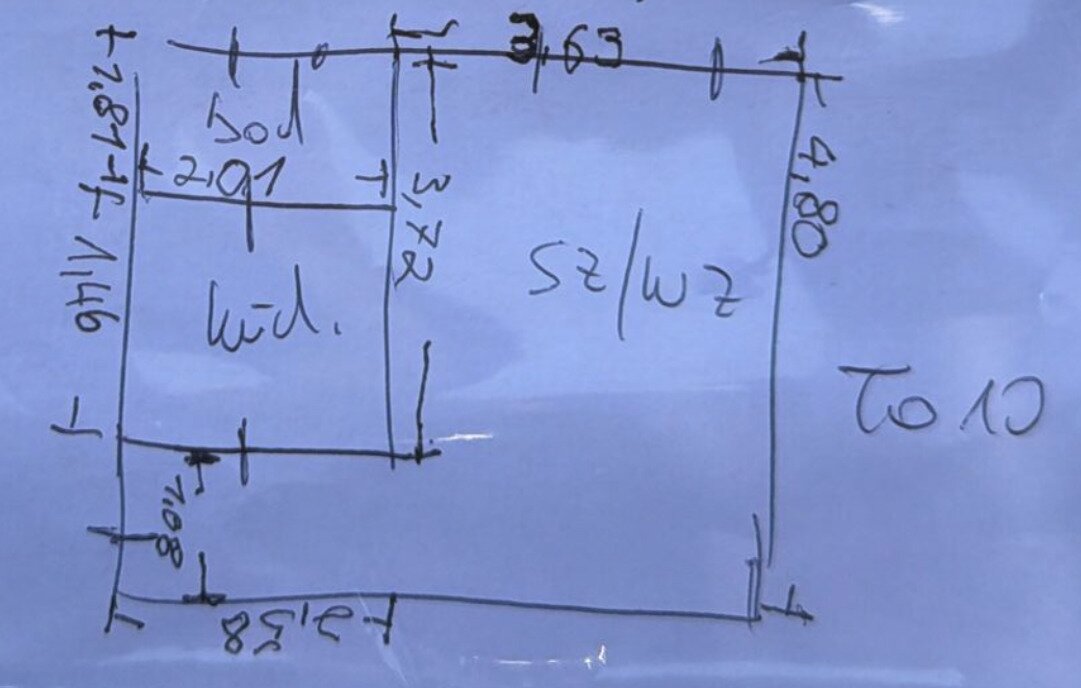 3,63
Bad
1,81
2,01
4,80
3,72
1,46
SZ/WZ
Küch.
To 10
1,08
2,58